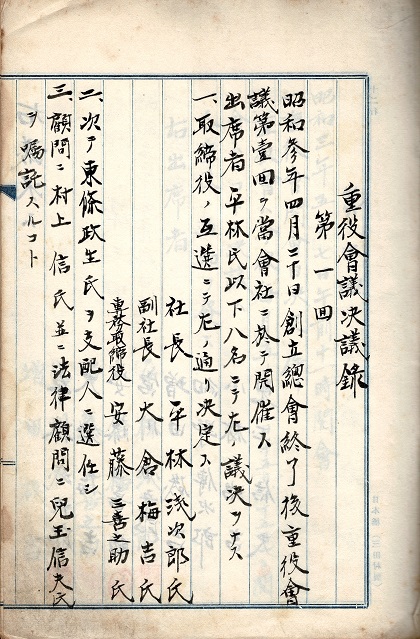 重役會議決議録
第一回
昭和参年四月二十日創立總會終了後重役會
議第壹回ヲ當會社ニ於テ開催ス
出席者平林氏以下八名ニテ左議決ヲナス
一、取締役ノ互選ニテ左ノ通リ決定ス
社長 平林浅次郎氏
副社長 大倉梅吉氏
専務取締役 安藤三喜之助氏
二、次テ東條政生氏ヲ支配人ニ選任シ
三、顧問ニ村上信氏並ニ法律顧問ニ兒玉信夫氏
ヲ嘱託スルコト